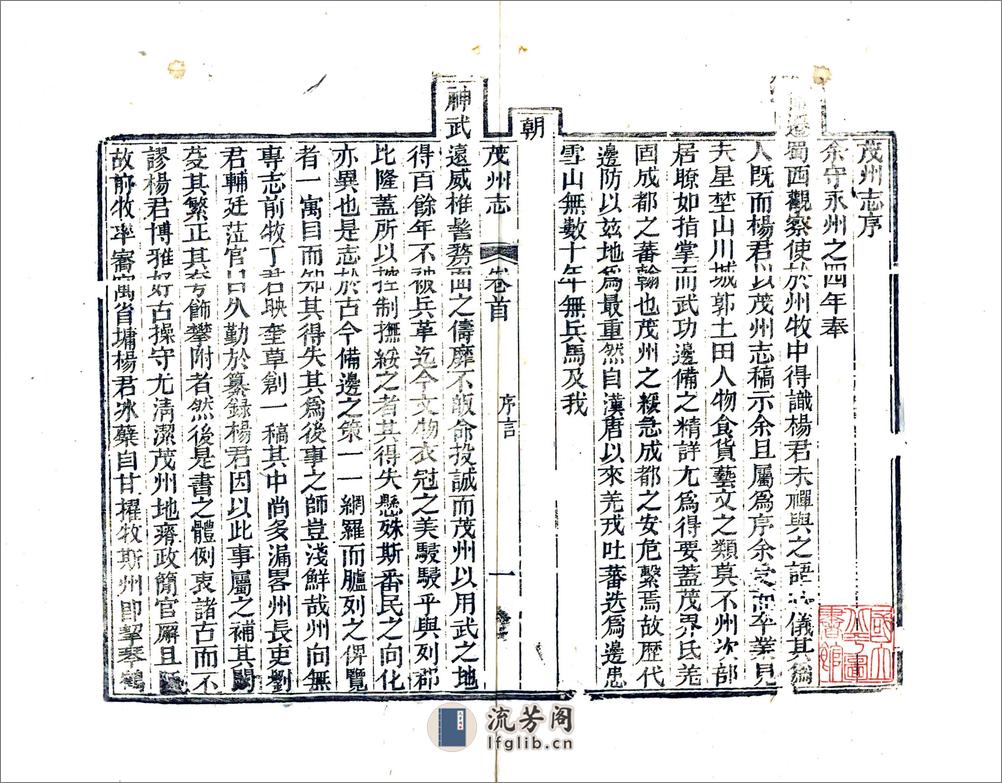 茂州志序
余守永州之四年奉
邊蜀西觀察使於州牧中得識楊君未禪與之語儀其爲
人既而楊君以茂州志稿示余且屬爲序余卒業見
夫星埜山川城郭土田人物食貨藝文之類莫不州次部
居瞭如指掌而武功邊備之精詳尤爲得要蓋茂界氐羌
固成都之蕃翰也茂州之緩急成都之安危繫焉故歷代
邊防以兹地爲最重然自漢唐以來羌戎吐蕃迭爲邊患
雪山無數十年無兵馬及我
朝
茂州志
卷首
序言
一
神武遠威椎髻剺面之儔靡不皈命投誠而茂州以用武之地
得百餘年不被兵革迄今文物衣冠之美駸駸乎與列郡
比隆蓋所以控制撫綏之者其得失懸殊斯番民之向化
亦異也是志於古今備邊之策一一網羅而臚列之俾覽
者一寓目而知其得失其爲後事之師豈淺鮮哉州向無
專志前牧丁君映奎草創一稿其中尚多漏畧州長吏劉
君輔廷蒞官日久勤於纂録楊君因以此事屬之補其闕
芟其繁正其夸飾攀附者然後是書之體例衷諸古而不
謬楊君博雅好古操守尤清潔茂州地瘠政簡官廨且
故前牧率寓省墉楊君冰蘗自甘擢牧斯州即挈琴鶴
國立北平圖書館
流芳阁
lfglib.cn